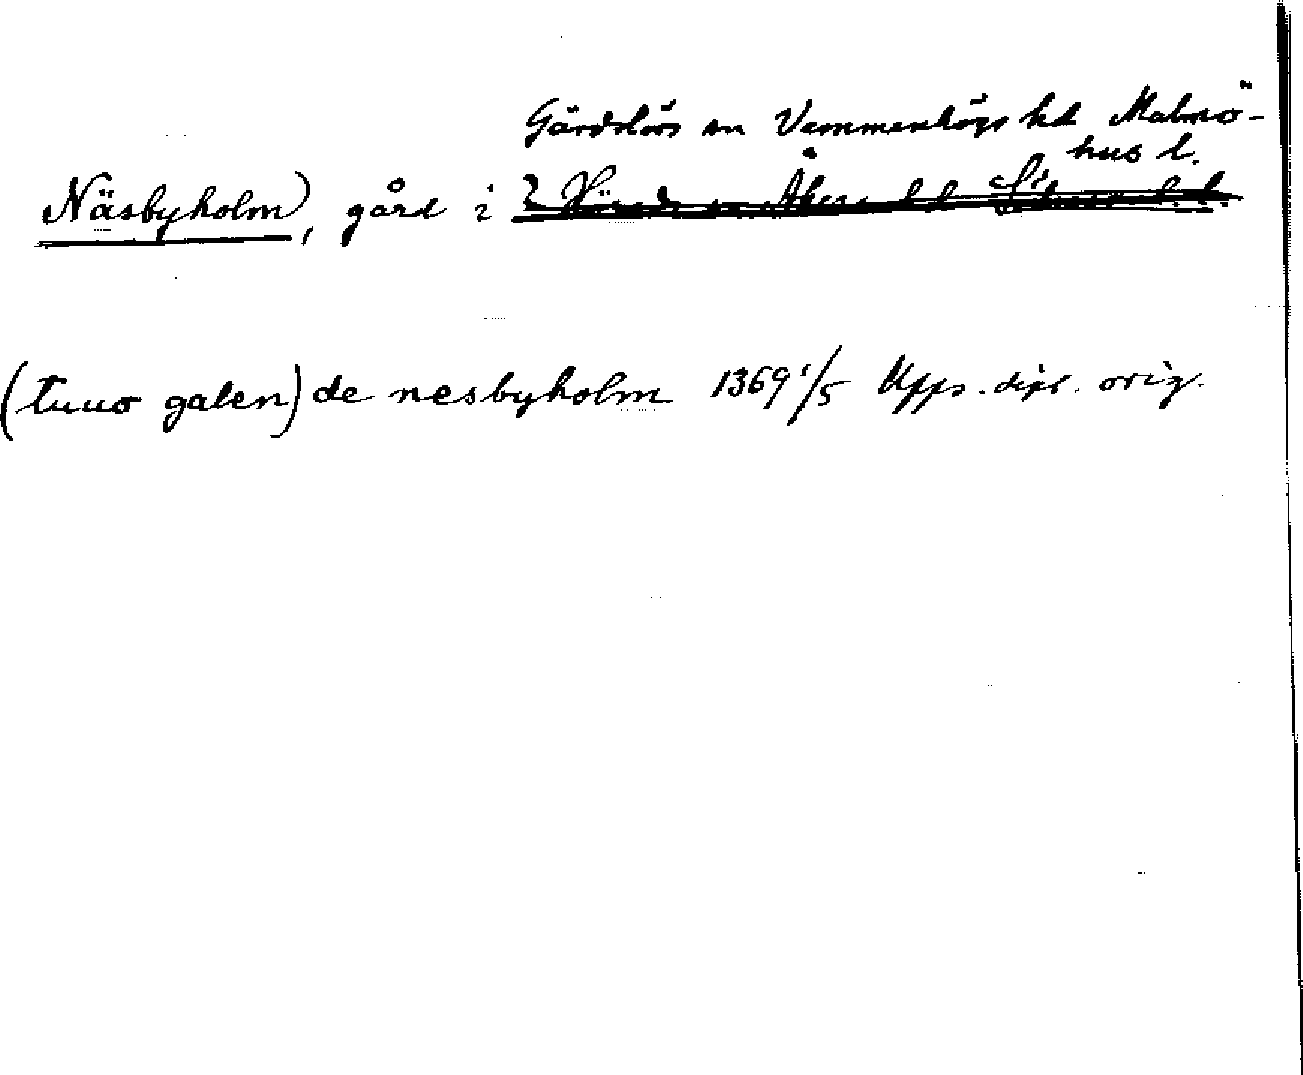 Gärdslövs sn Vemmenhögs hd Malmö-
hus l.
Näsbyholm, gård i
(tuuo galen) de nesbyholm 1369 1/5 Upps. dipl. orig.